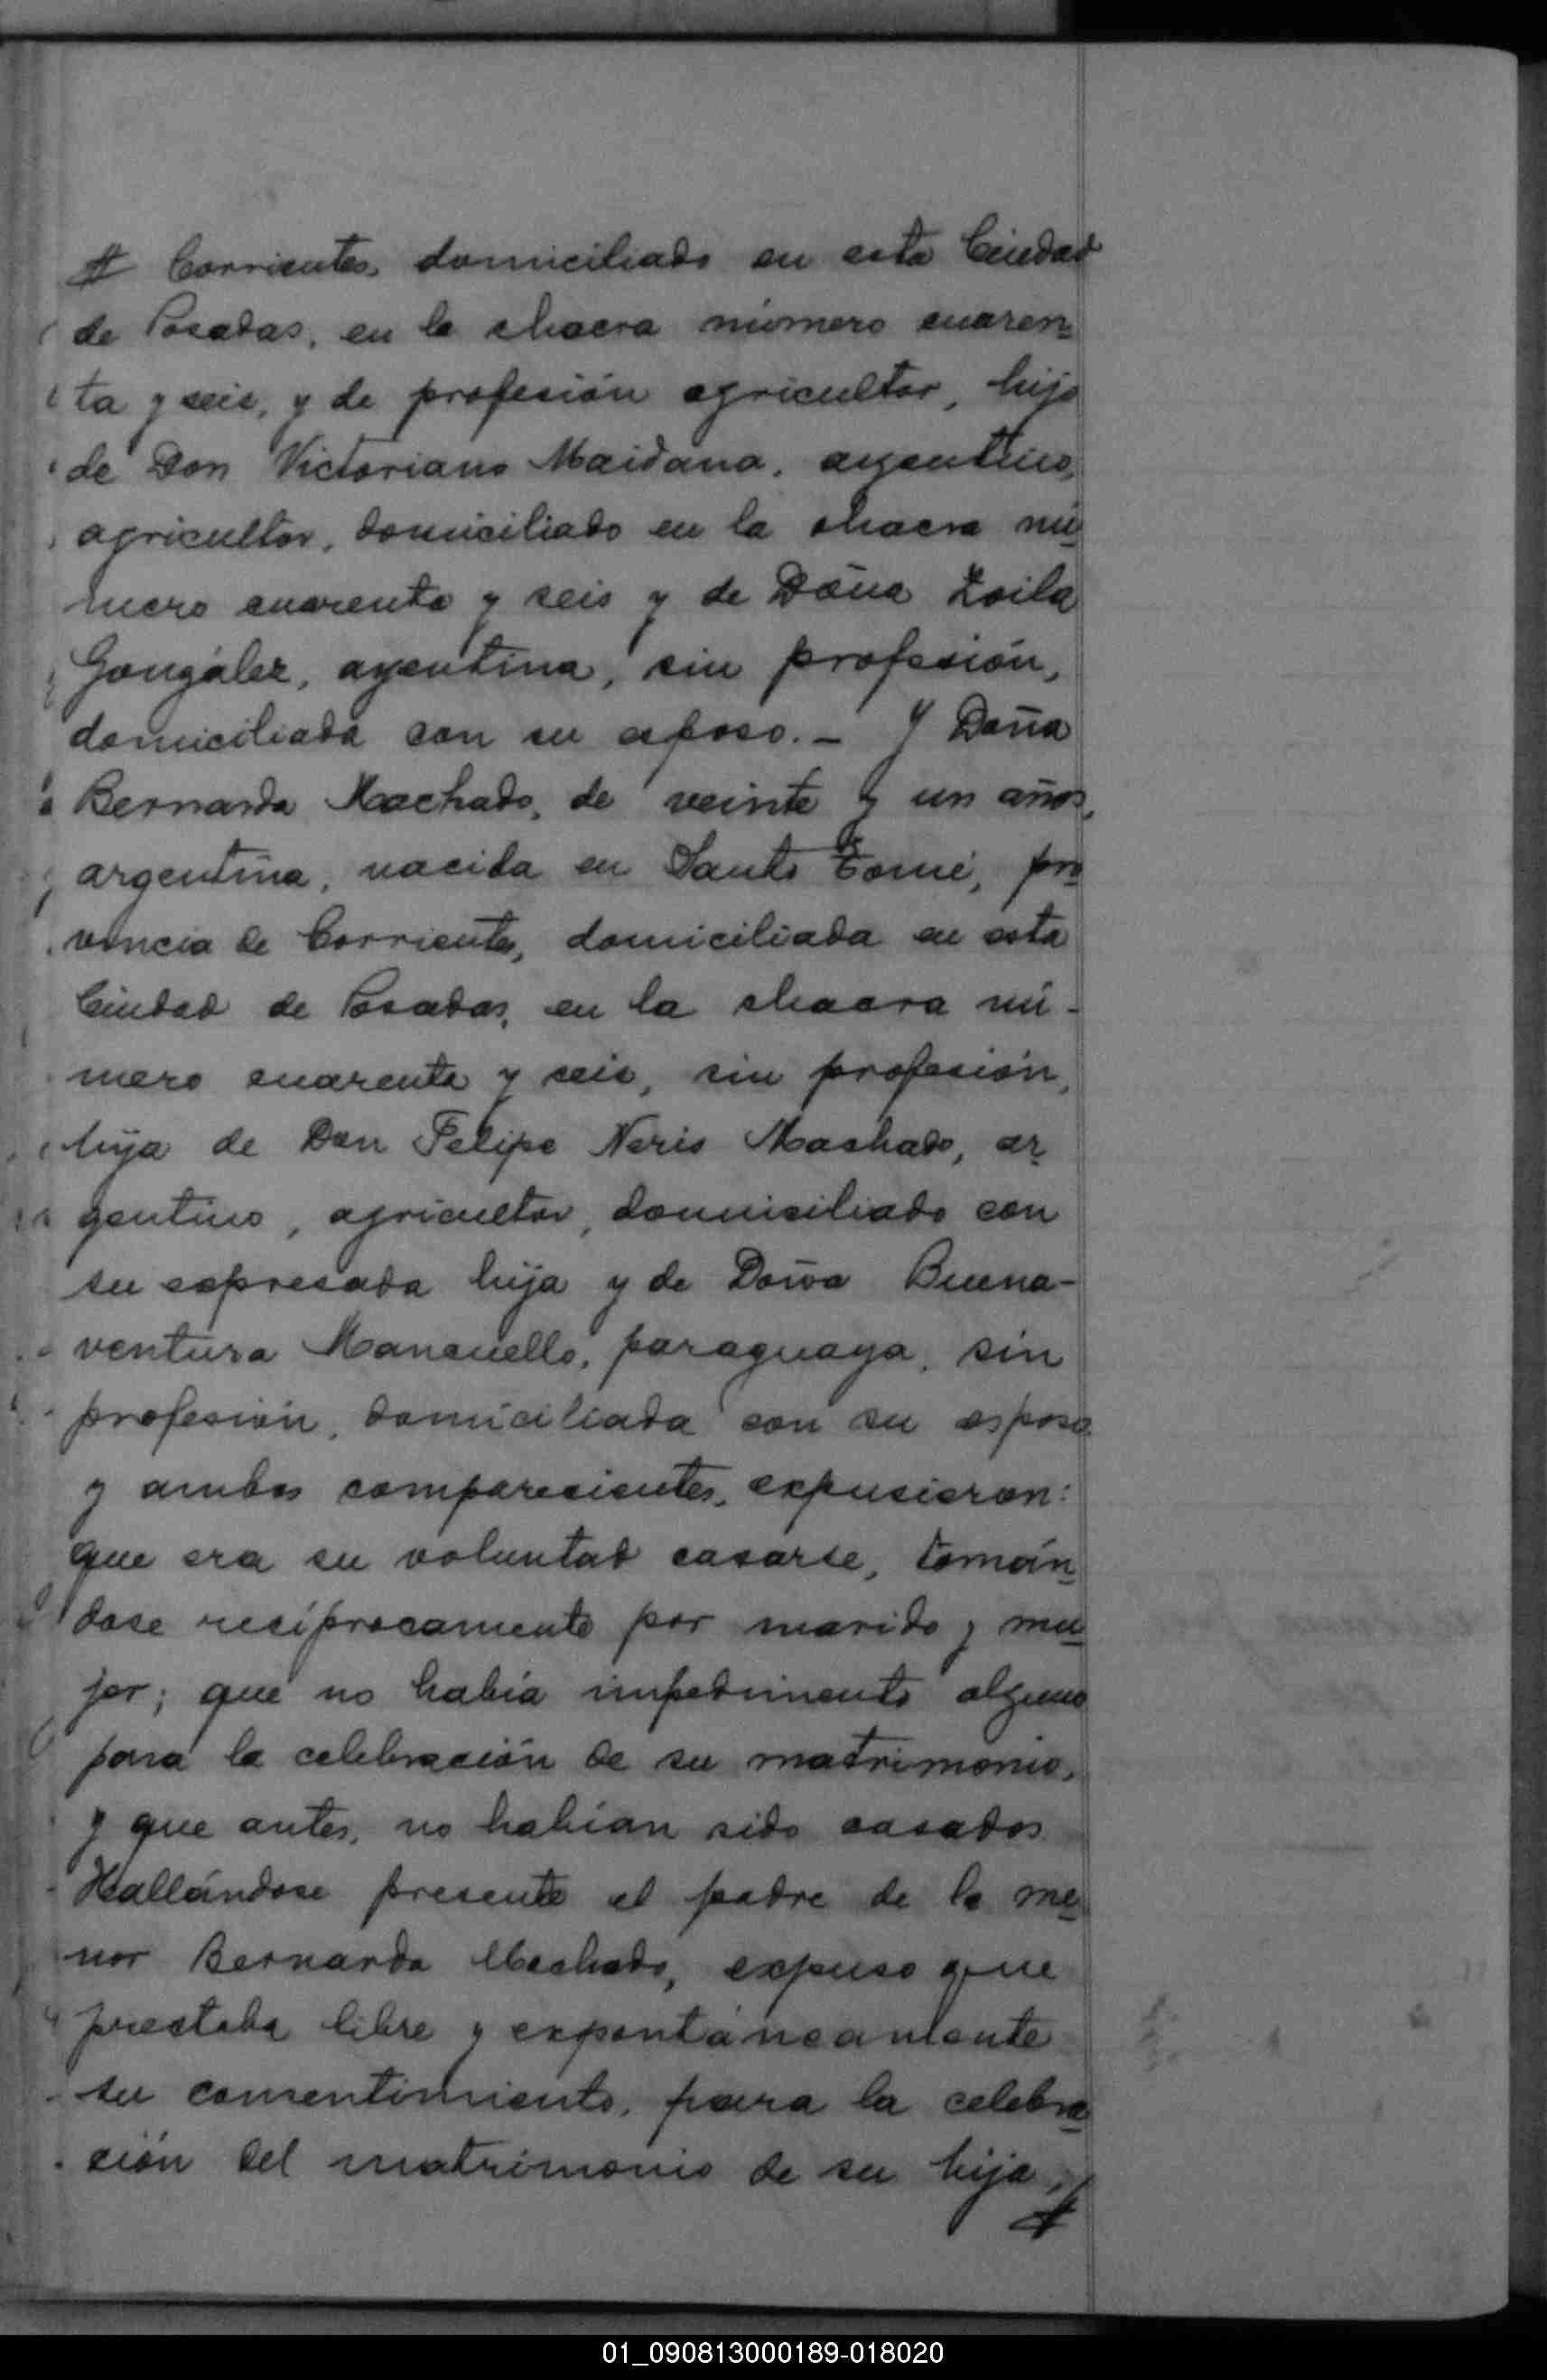 # Corrientes, domiciliado en esta Ciudad
de Posadas, en la chacra número cuaren_
ta y seis, y de profesión agricultor, hijo
de Don Victoriano Maidana, argentino,
agricultor, domiciliado en la chacra nú_
mero cuarenta y seis y de Doña Zoila
González, argentina, sin profesión,
domiciliada con su esposo.- Y Doña
Bernarda Machado, de veinte y un años,
argentina, nacida en Santo Tomé, pro_
vincia de Corrientes, domiciliada en esta
Ciudad de Posadas, en la chacra nú-
mero cuarenta y seis, sin profesión,
hija de Don Felipe Neris Machado, ar_
gentino, agricultor, domiciliado con
su expresada hija y de Doña Buena-
ventura Mancuello, paraguaya, sin
profesión, domiciliada con su esposo
y ambos comparecientes, expusieron:
que era su voluntad casarse, tomán_
dose recíprocamente por marido y mu_
jer; que no había impedimento alguno
para la celebración de su matrimonio,
y que antes, no habían sido casados
Hallándose presente el padre de la me_
nor Bernarda Machado, expuso que
prestaba libre y expontáneamente
su consentimiento, para la celebra_
ción del matrimonio de su hija, #
01_090813000189-018020